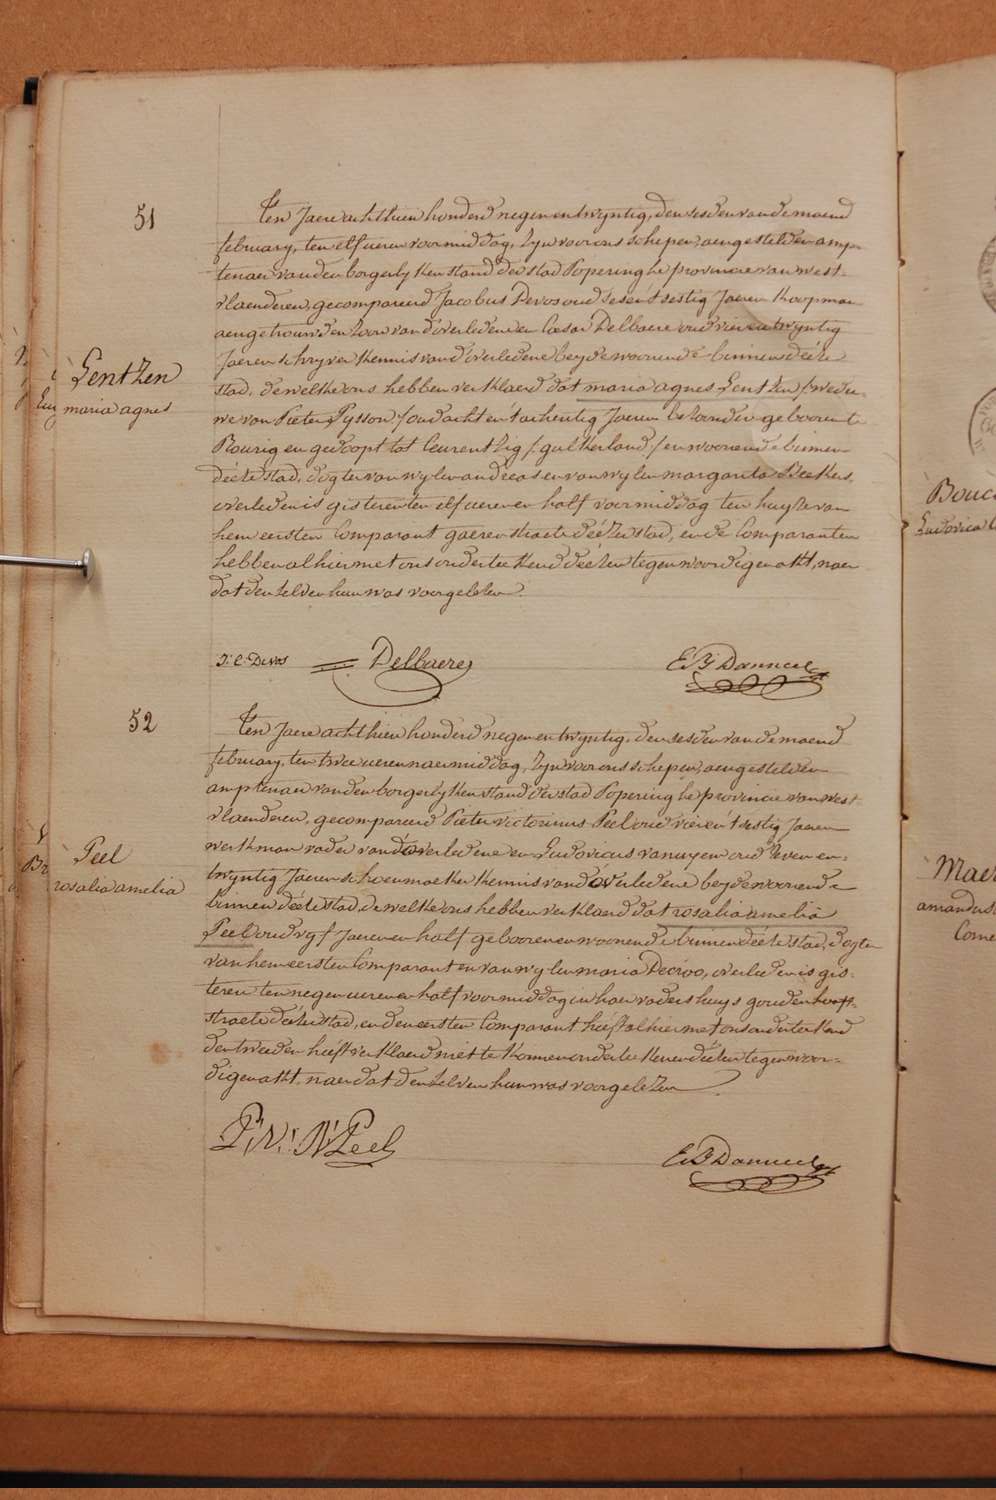 51
Ten Jaere achthien honderd negen en twyntig, den sesden van de maend
february, ten elf ueren voormiddag, zyn voor ons schepen, aengestelden amp-
tenaer van den borgerlyken stand der stad Poperinghe provincie van west-
vlaenderen, gecompareerd Jacobus Devos oud sesen t'sestig Jaeren koopman
aengetrouwden zoon van d'overledene en Cesar Delbaere oud vier en twyntig
Jaeren schryver kennis van d'overledene beyde woonende binnen deéze
Gentzen
maria agnes
stad, de welke ons hebben verklaerd dat maria agnes Gentzen /wedu-
we van Pieter Pysson/ oud acht en t'achentig Jaeren geboren te
Rourig en gedoopt tot Leurentzig /gulkerland/ en woonende binnen
deéze stad, dogter van wylen andreas en van wylen margareta
overleden is gisteren ten elf ueren en half voormiddag ten huyze van
hem eersten Comparant gaeren straete deézer stad, en de Comparanten
hebben alhier met ons onderteekend deézen tegenwoordigen akt, naer
dat den zelven hun was voorgelezen.
J: C: Devos Delbaere E: B: Danneel
52
Ten Jaere achthien honderd negen en twyntig, den sesden van de maend
february, ten twee ueren naermiddag, zyn voor ons schepen, aengestelden
amptenaer van den borgerlyken stand der stad Poperinghe provincie van west-
vlaenderen, gecompareerd Pieter victorinus Peel oud vier en t'sestig Jaeren
werkman vader van d'overledene en Ludovicus vanuxem oud zeven en-
Peel
rosalia amelia
twyntig Jaeren schoenmaeker kennis van d'overledene beyde woonende
binnen deéze stad, de welke ons hebben verklaerd dat rosalia amelia
Peel oud vyf Jaeren en half geboren en woonende binnen deéze stad, dogter
van hem eersten Comparant en van wylen maria Decroo, overleden is gis-
teren ten negen ueren en half voormiddag in haer vaders huys gouden hooft-
straete deézer stad, en den eersten Comparant heéft alhier met ons onderteekend
den tweeden heéft verklaerd niét te konnen onderteekenen deézen tegenwoor-
digen akt, naer dat den zelven hun was voorgelezen.
P: V: N: Peel E: B: Danneel
Bouc
Ludovica C
Maer
amandus
Corne